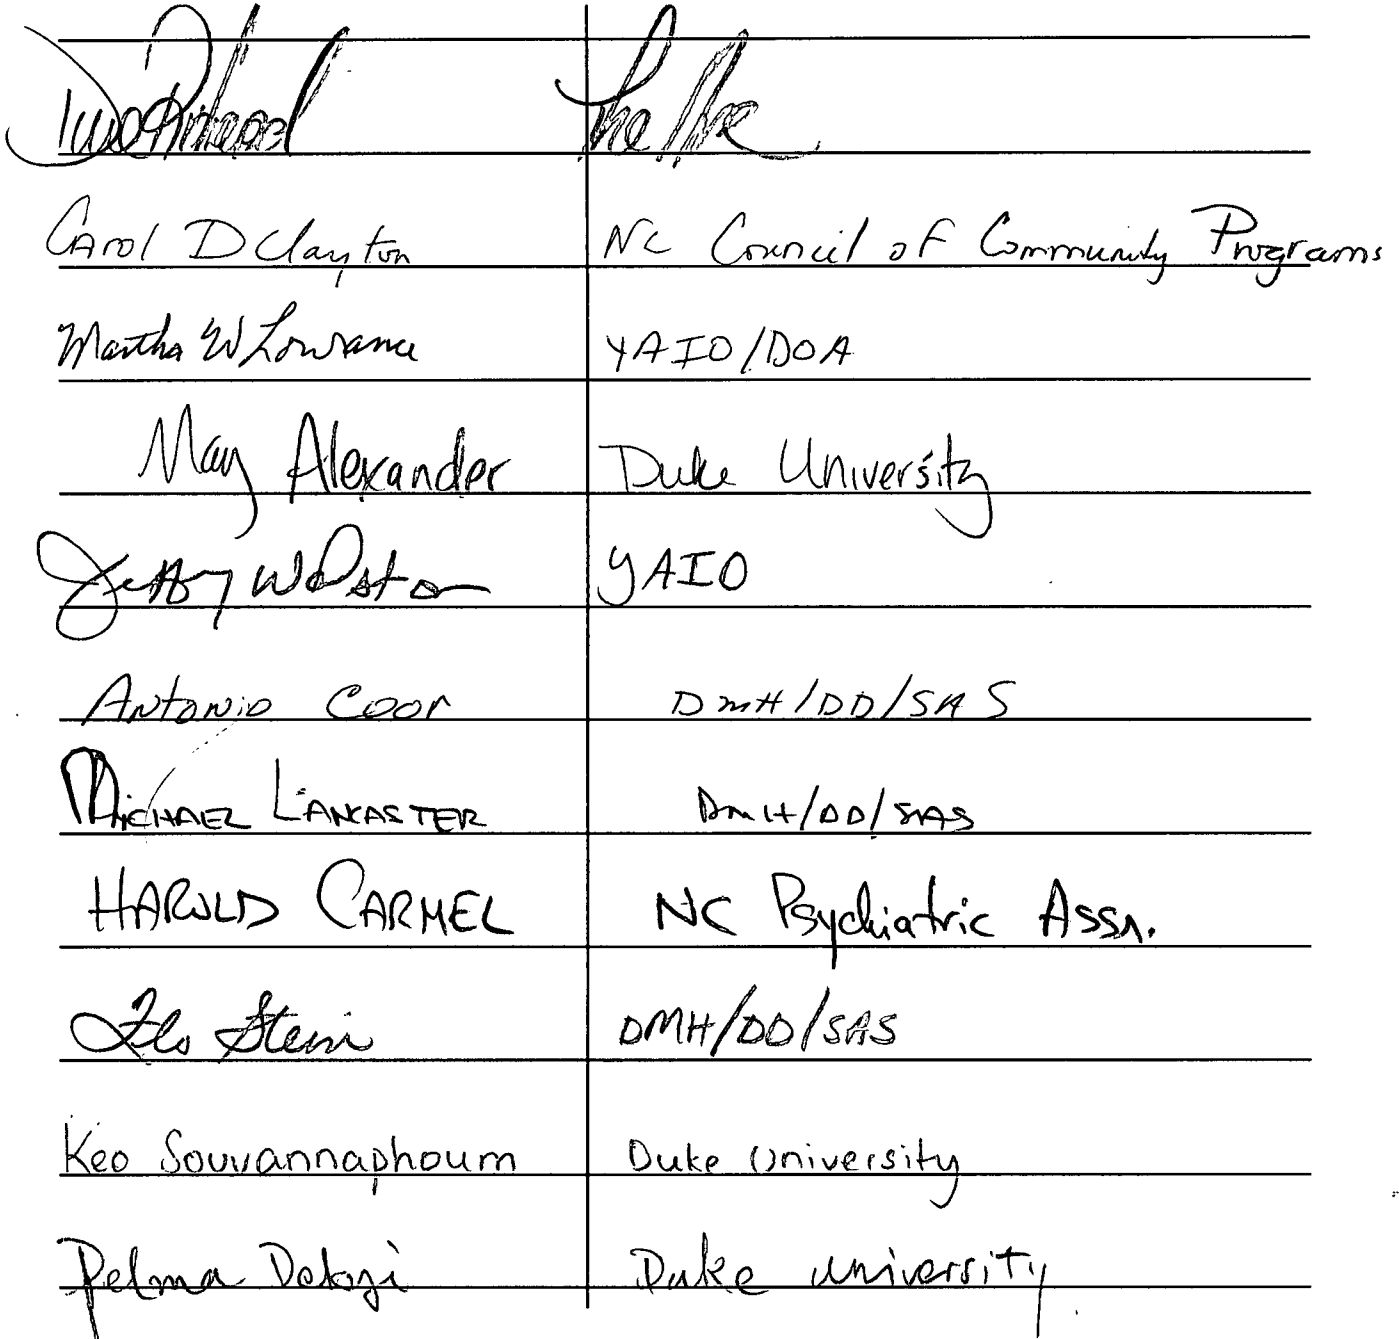 Carol D Clayton NC Council of Community Programs
Martha W Lowrance YAIO/DOA
May Alexander Duke University
YAIO
Antonio Coor DMH/DD/SAS
Michael Lancaster DMH/DD/SAS
HAROLD CARMEL NC Psychiatric Assn.
Flo Stein DMH/DD/SAS
Keo Souvannaphoum Duke University
Duke University